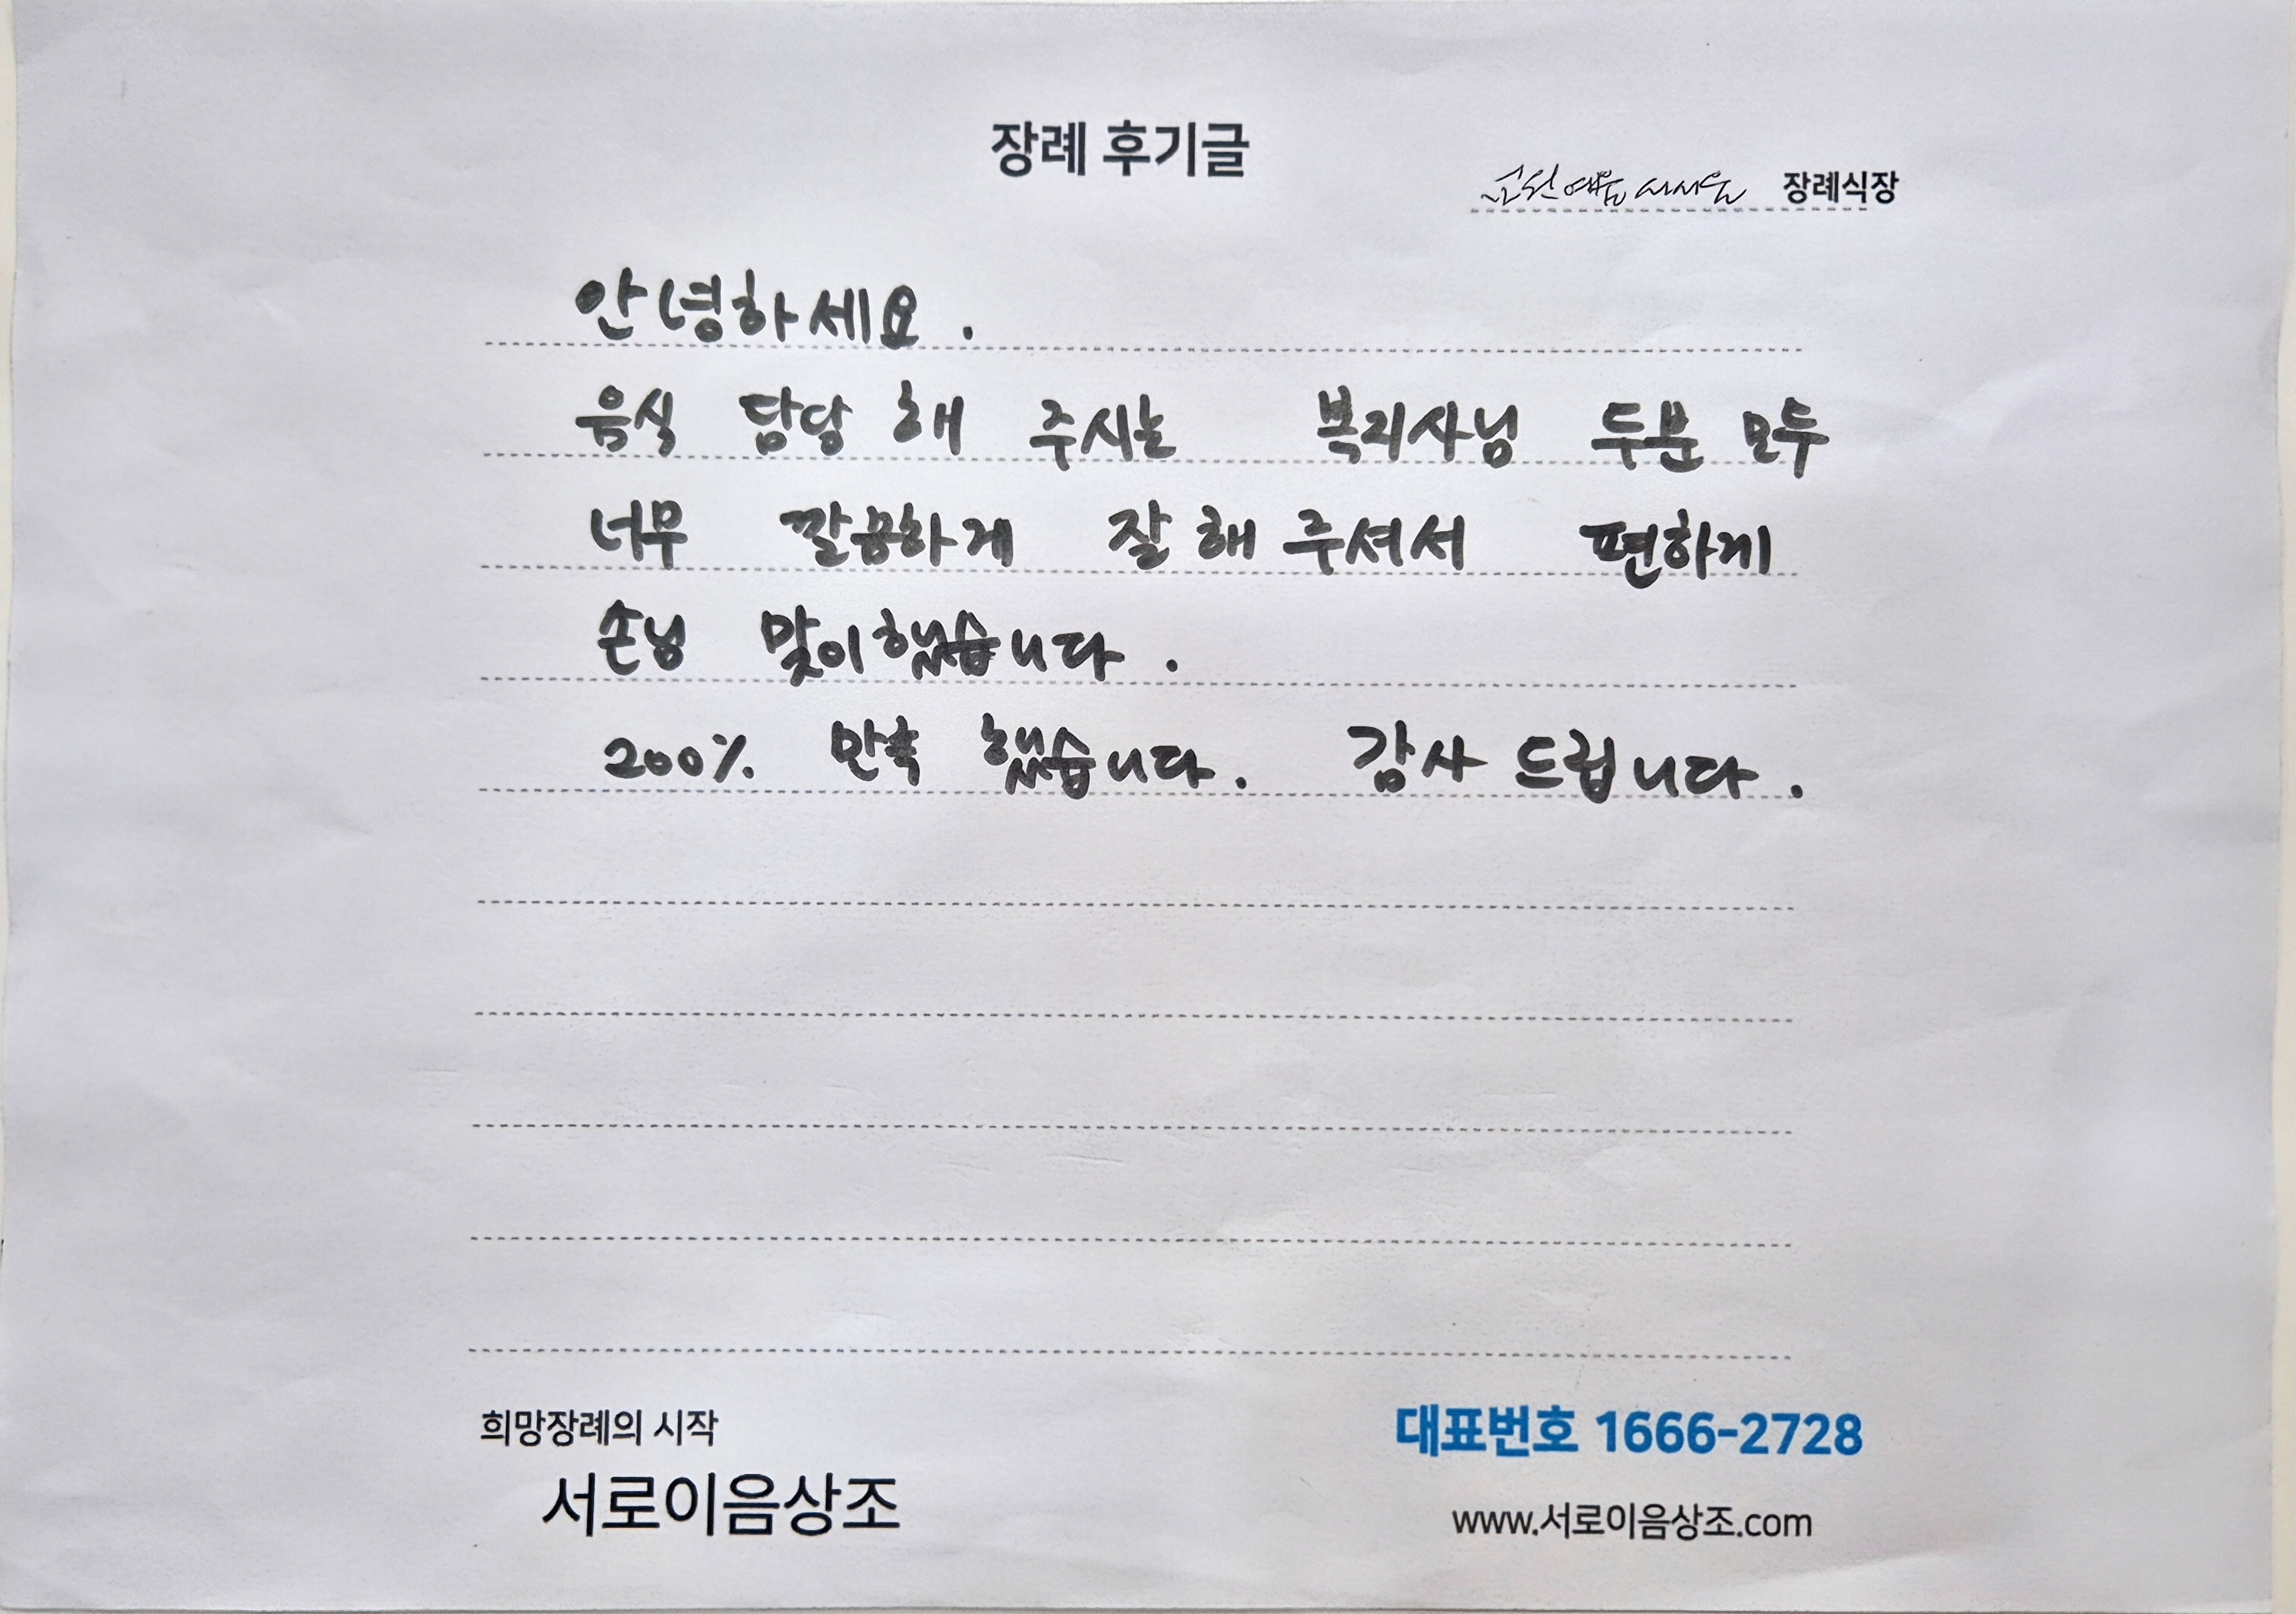 장례 후기글
장례식장
안녕하세요.
음식 담당 해 주시는 복지사님 두분 모두
너무 깔끔하게 잘 해 주셔서 편하게
손님 맞이했습니다.
200% 만족 했습니다. 감사 드립니다.
희망장례의 시작
대표번호 1666-2728
서로이음상조
www.서로이음상조.com